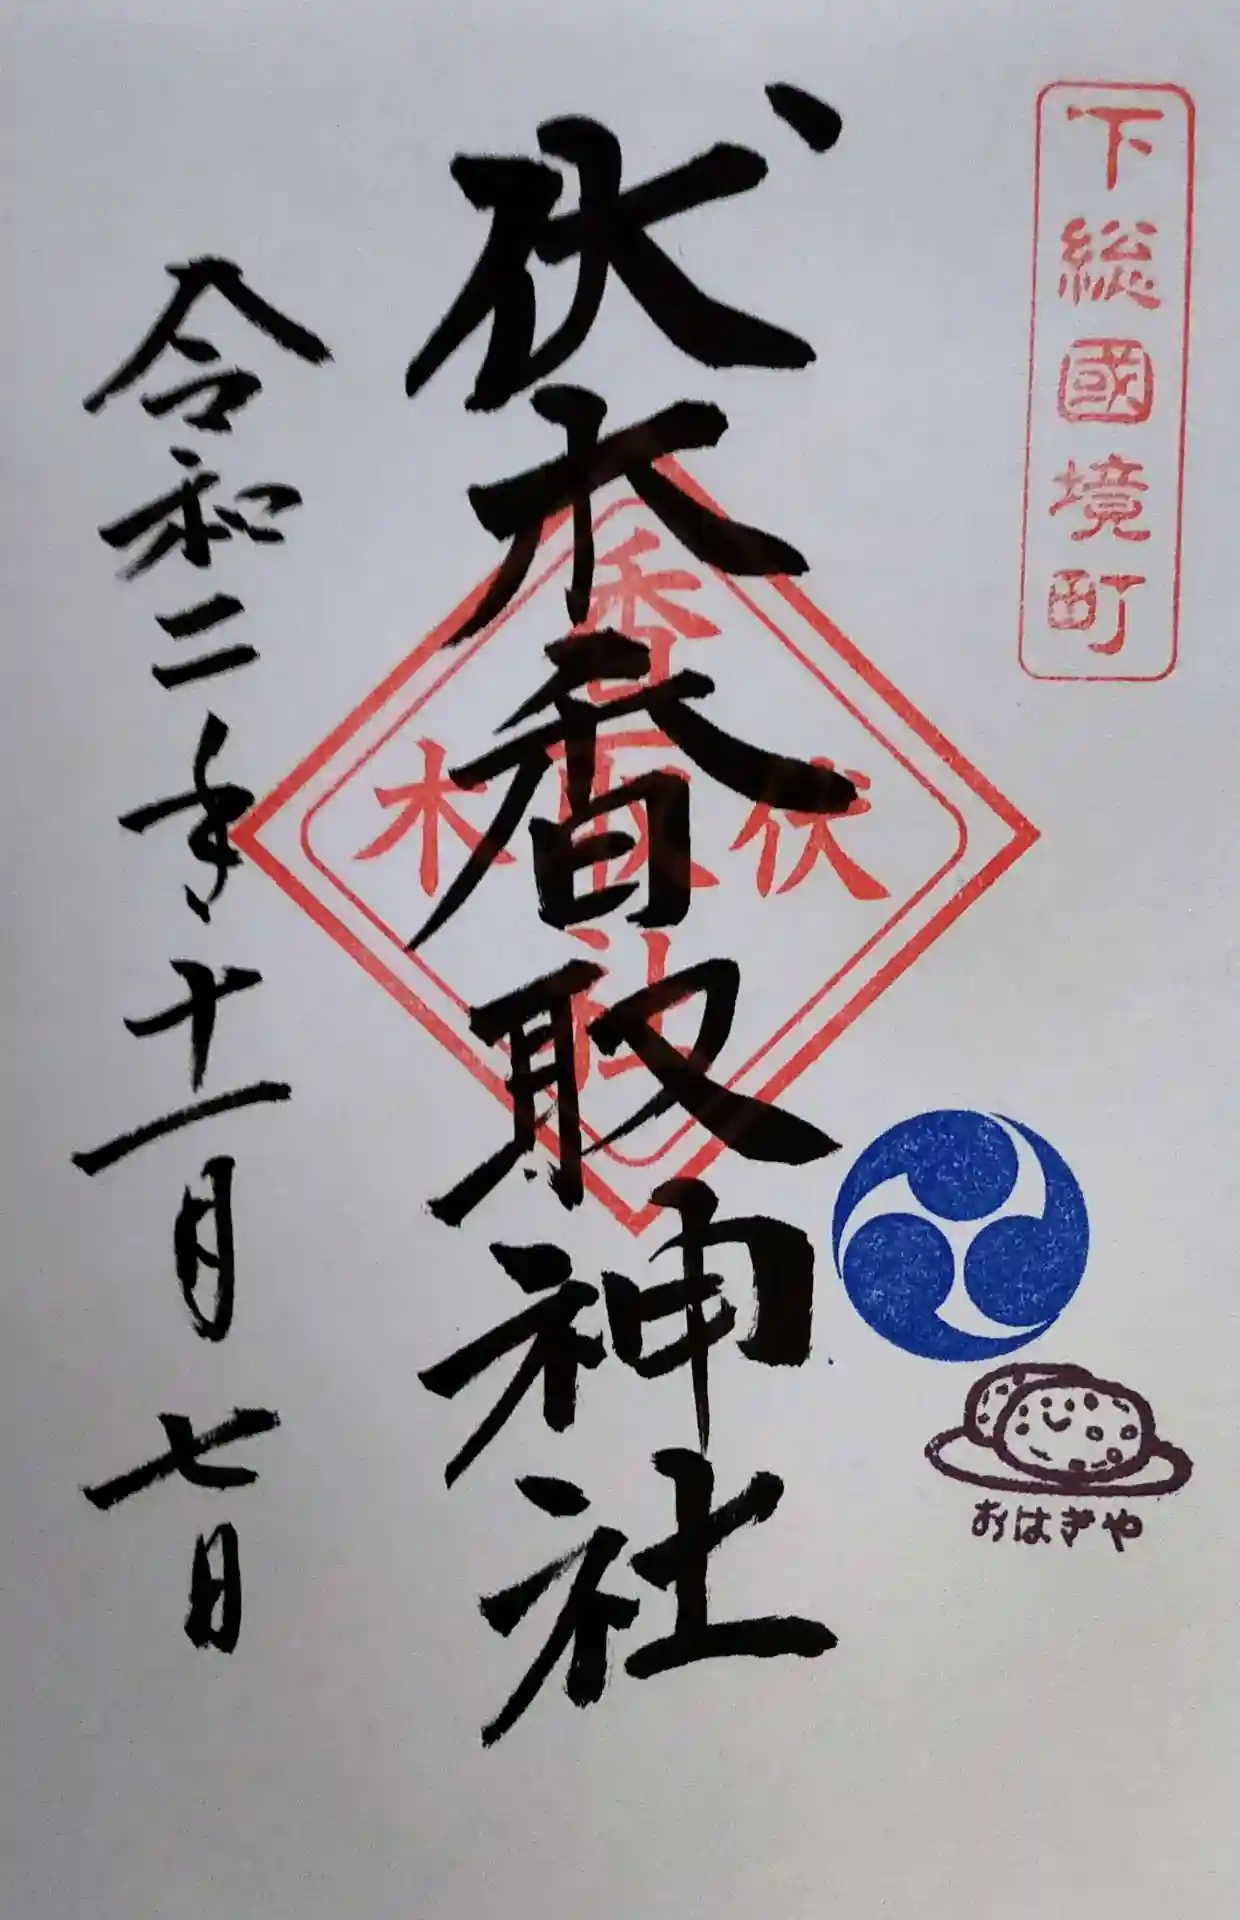 下総國境町
伏木香取神社
伏木
香取社
おはぎや
令和二年十一月七日